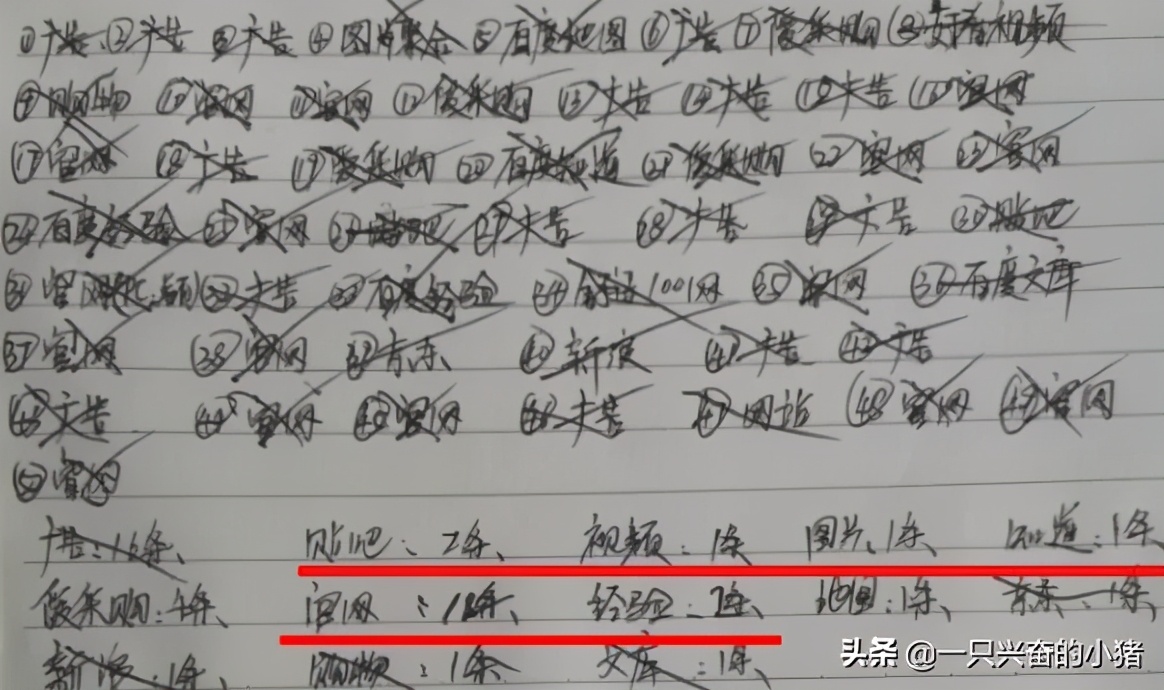 ①广告、②广告 ③广告 ④图片集合 ⑤百度地图 ⑥广告 ⑦爱采购 ⑧好看视频
⑨购物 ⑩官网 ⑪官网 ⑫爱采购 ⑬广告 ⑭广告 ⑮广告 ⑯官网
⑰官网 ⑱广告 ⑲爱采购 ⑳百度知道 ㉑爱采购 ㉒官网 ㉓官网
㉔百度经验 ㉕官网 ㉖贴吧 ㉗广告 ㉘广告 ㉙广告 ㉚贴吧
㉛官网 ㉜广告 ㉝百度经验 ㉞1001网 ㉟官网 ㊱百度文库
㊲官网 ㊳官网 ㊴京东 ㊵新浪 ㊶广告 ㊷广告
㊸广告 ㊹官网 ㊺官网 ㊻广告 ㊼网站 ㊽官网 ㊾官网
㊿官网
广告:16条、 贴吧:2条、 视频:1条 图片、1条、 知道:1条
爱采购:4条、 官网:18条、 经验:2条、 地图:1条、 京东:1条、
新浪:1条、 购物:1条 文库:1条、
头条 @一只兴奋的小猪